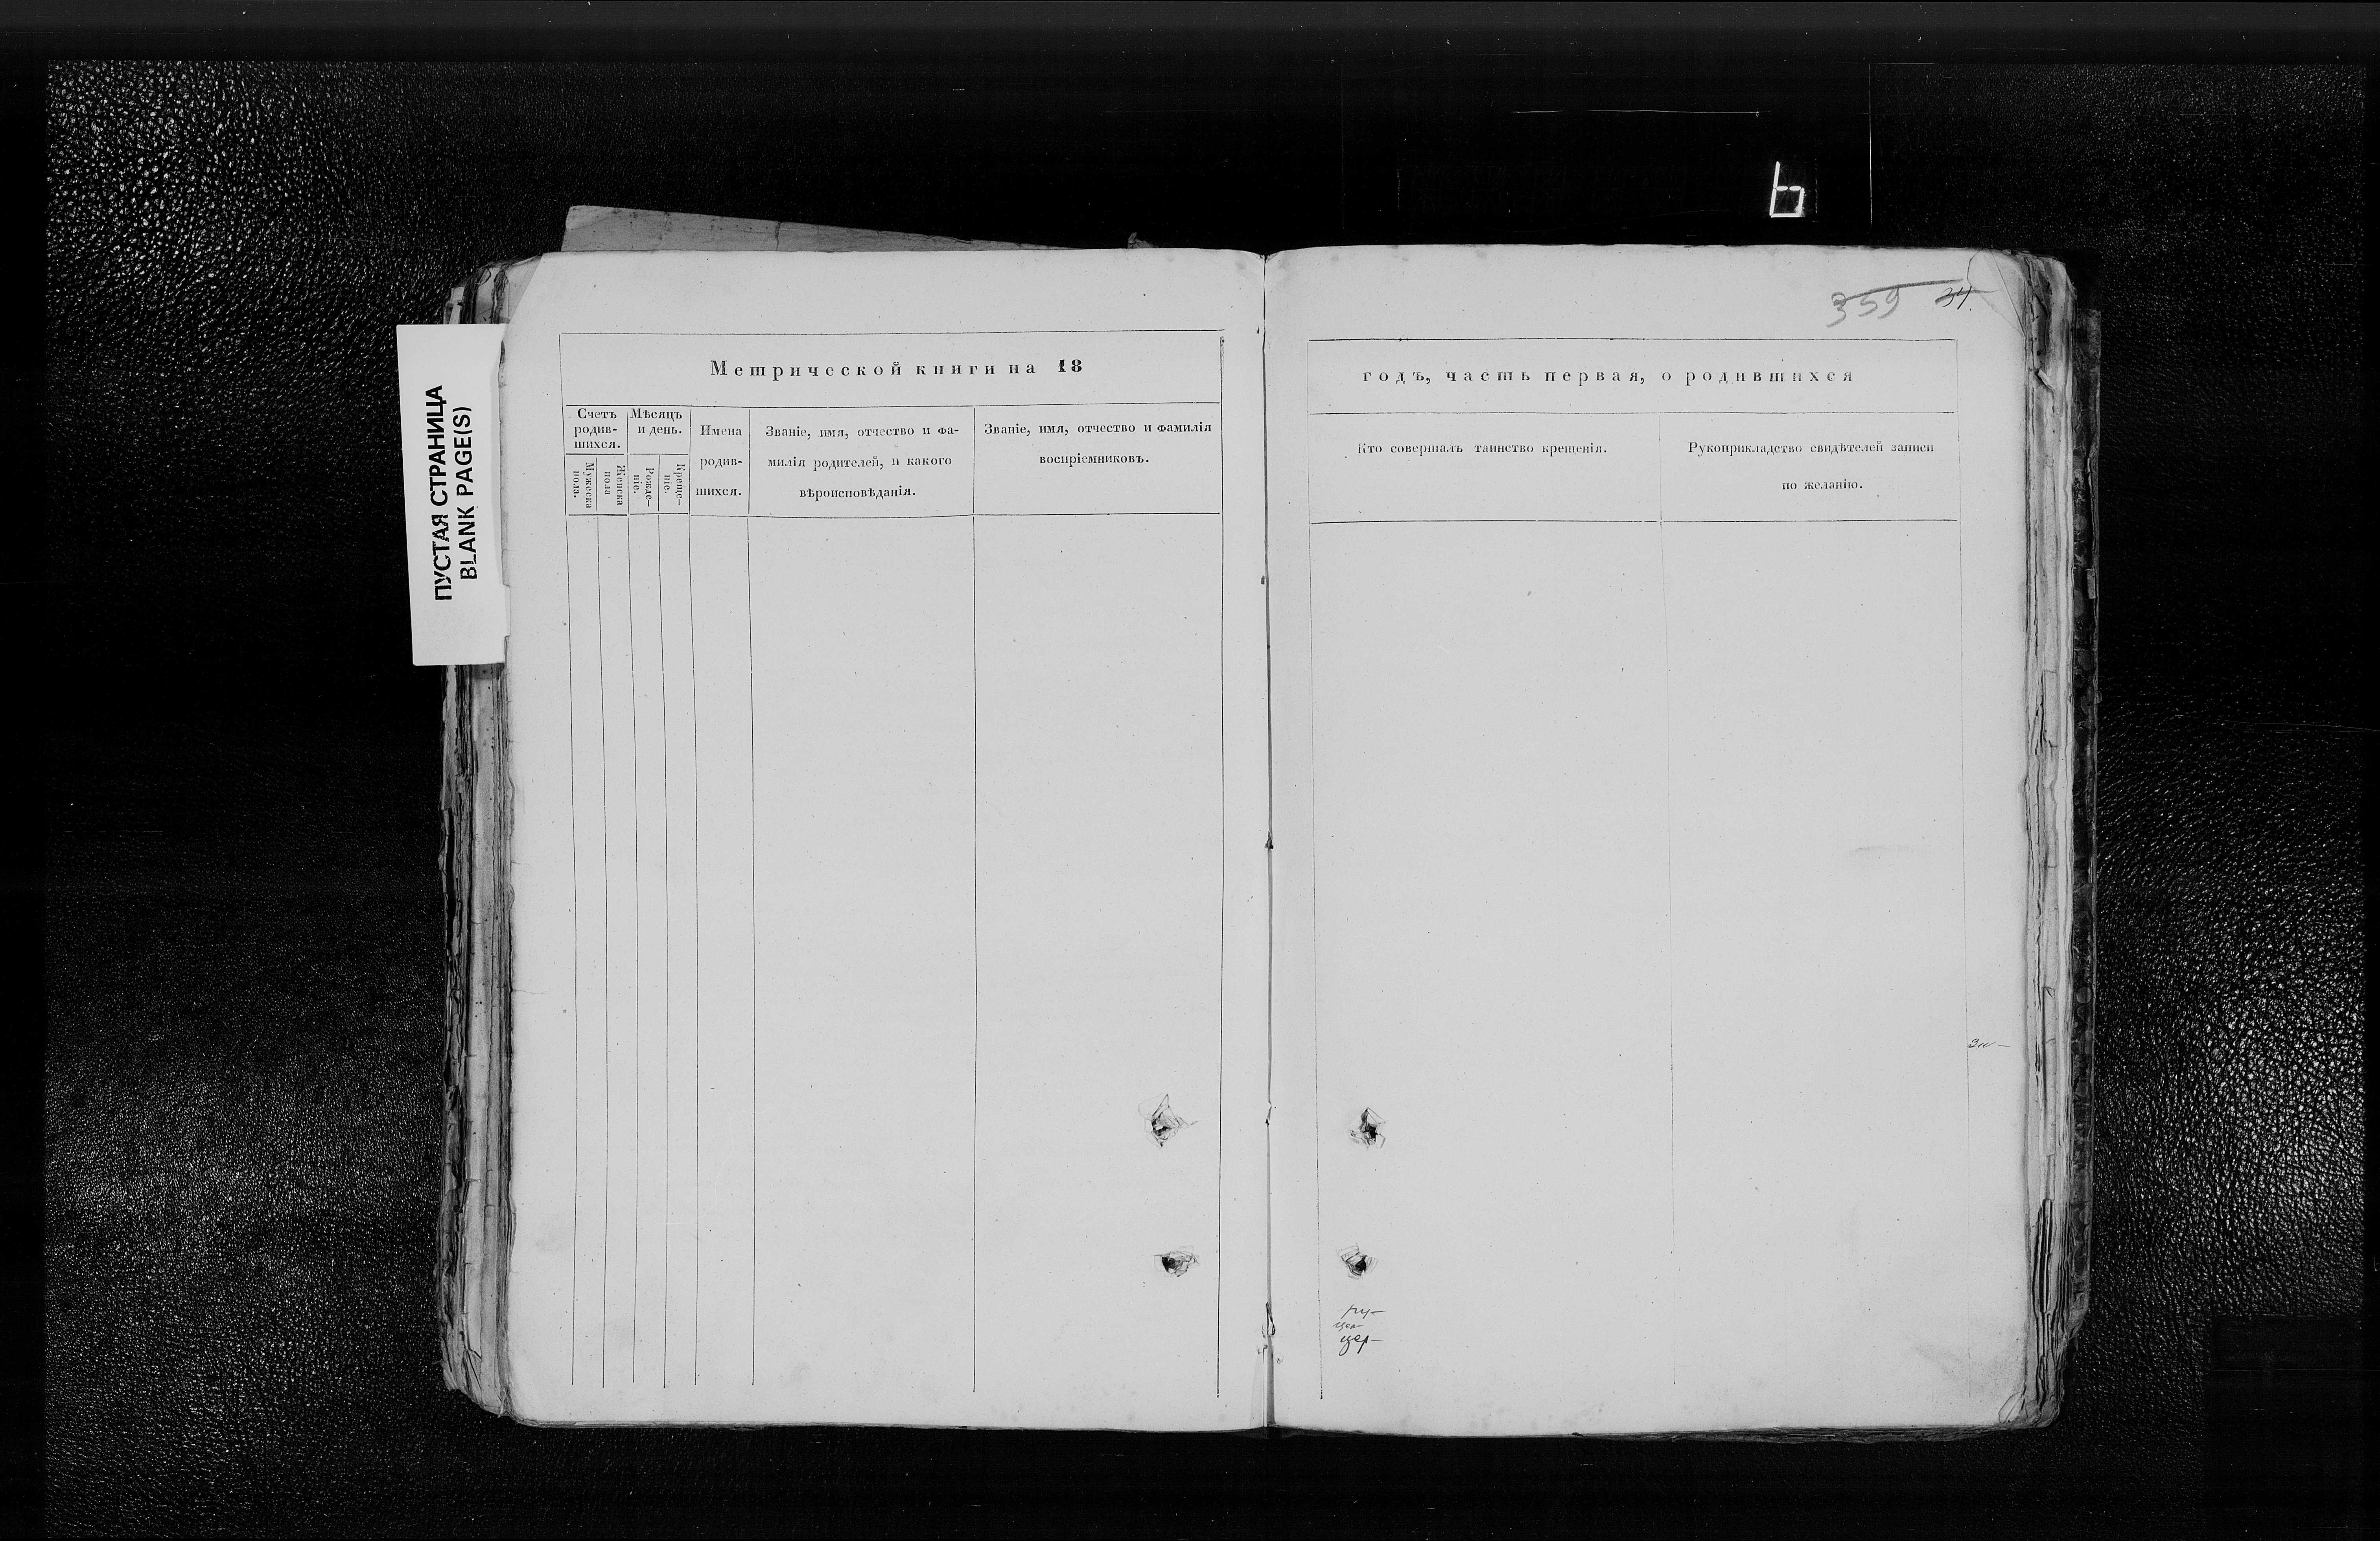 ПУСТАЯ СТРАНИЦА
BLANK PAGE(S)
6
359 34.
Метрической книги на 18
Счетъ родив-шихся.
Мужеска пола.
Женска пола
Мѣсяцъ и день.
Рожде-ніе.
Креще-ніе.
Имена
родив-
шихся.
Званіе, имя, отчество и фа-
милія родителей, и какого
вѣроисповѣданія.
Званіе, имя, отчество и фамилія
воспріемниковъ.
годъ, часть первая, о родившихся
Кто совершалъ таинство крещенія.
Рукоприкладство свидѣтелей записи
по желанію.
цер-